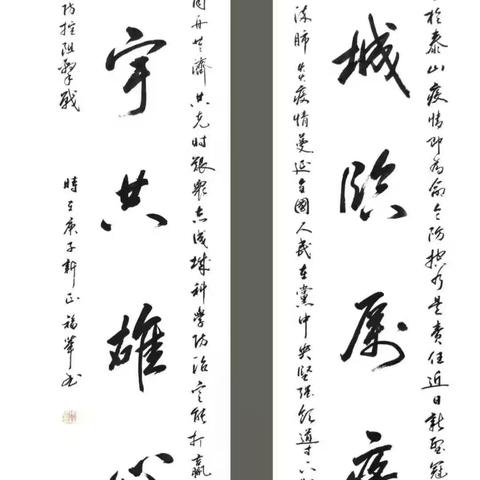 於泰山疫情即為命令防控乃是責任近日新型冠
城臨厉疫
肺炎疫情蔓延全國人民在黨中央堅強領導下
同舟共濟共克時艱眾志成城科學防治定能打贏
宇共雄
防控阻擊戰
時在庚子新正福華書